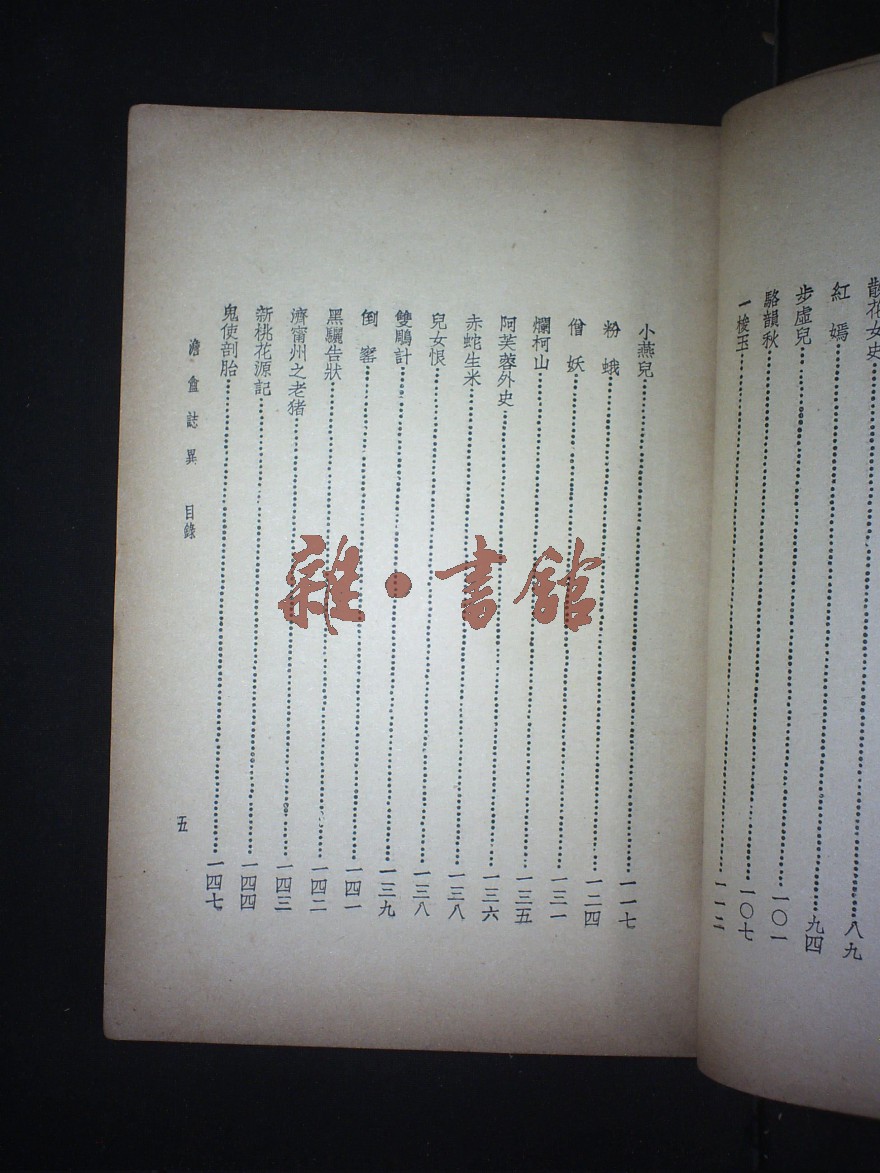 散花女史 八九
紅嫣 九四
步虛兒 一〇一
駱韻秋 一〇七
一梭玉 一一二
小燕兒 一一七
粉蛾 一二四
僧妖 一三一
爛柯山 一三五
阿芙蓉外史 一三六
赤蛇生米 一三八
兒女恨 一三八
雙鵰計 一三九
倒窰 一四一
黑驪告狀 一四二
濟甯州之老猪 一四三
新桃花源記 一四四
鬼使剖胎 一四七
澹盦誌異 目錄 五
雜·書館